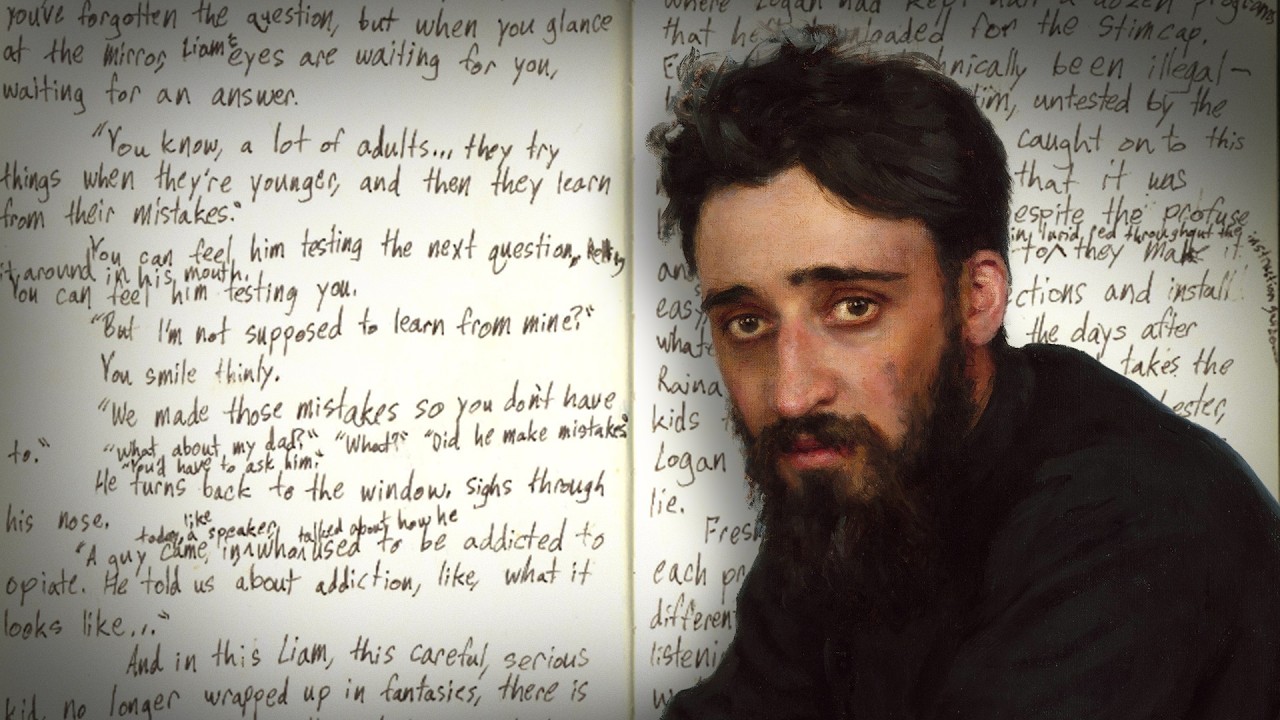 you've forgotten the question, but when you glance
at the mirror, Liam's eyes are waiting for you,
waiting for an answer.
"You know, a lot of adults... they try
things when they're younger, and then they learn
from their mistakes."
You can feel him testing the next question, rolling
it around in his mouth.
You can feel him testing you.
"But I'm not supposed to learn from mine?"
You smile thinly.
"We made those mistakes so you don't have
to." "What about my dad?" "What?" "Did he make mistakes?"
"You'd have to ask him."
He turns back to the window. Sighs through
his nose.
today, like a speaker, talked about how he
"A guy came in, who used to be addicted to
opiate. He told us about addiction, like, what it
looks like..."
And in this Liam, this careful, serious
kid, no longer wrapped up in fantasies, there is
where Logan had kept half a dozen programs
that he'd downloaded for the Stimcap.
technically been illegal—
untested by the
caught on to this
that it was
despite the profuse
in lurid red throughout the
instruction
they make it
easy
instructions and install
the days after
Raina takes the
kids
Logan
lie.
each
different